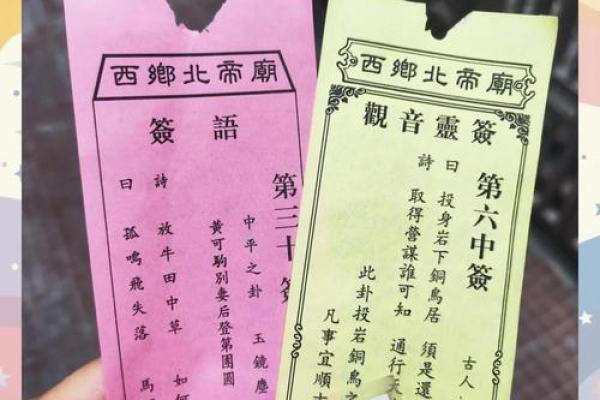 西鄉北帝廟
簽語
第三十簽
中平之卦 玉鏡塵
黃可駒別妻后登第團圓
詩 放牛田中草 如何
曰 孤鳴飛失落 馬
西鄉北帝廟
觀音靈簽
第六中簽
古人
詩曰
投身岩下銅鳥居 須是還
取得營謀誰可知 通行天
此卦投岩銅鳥之
凡事宜順